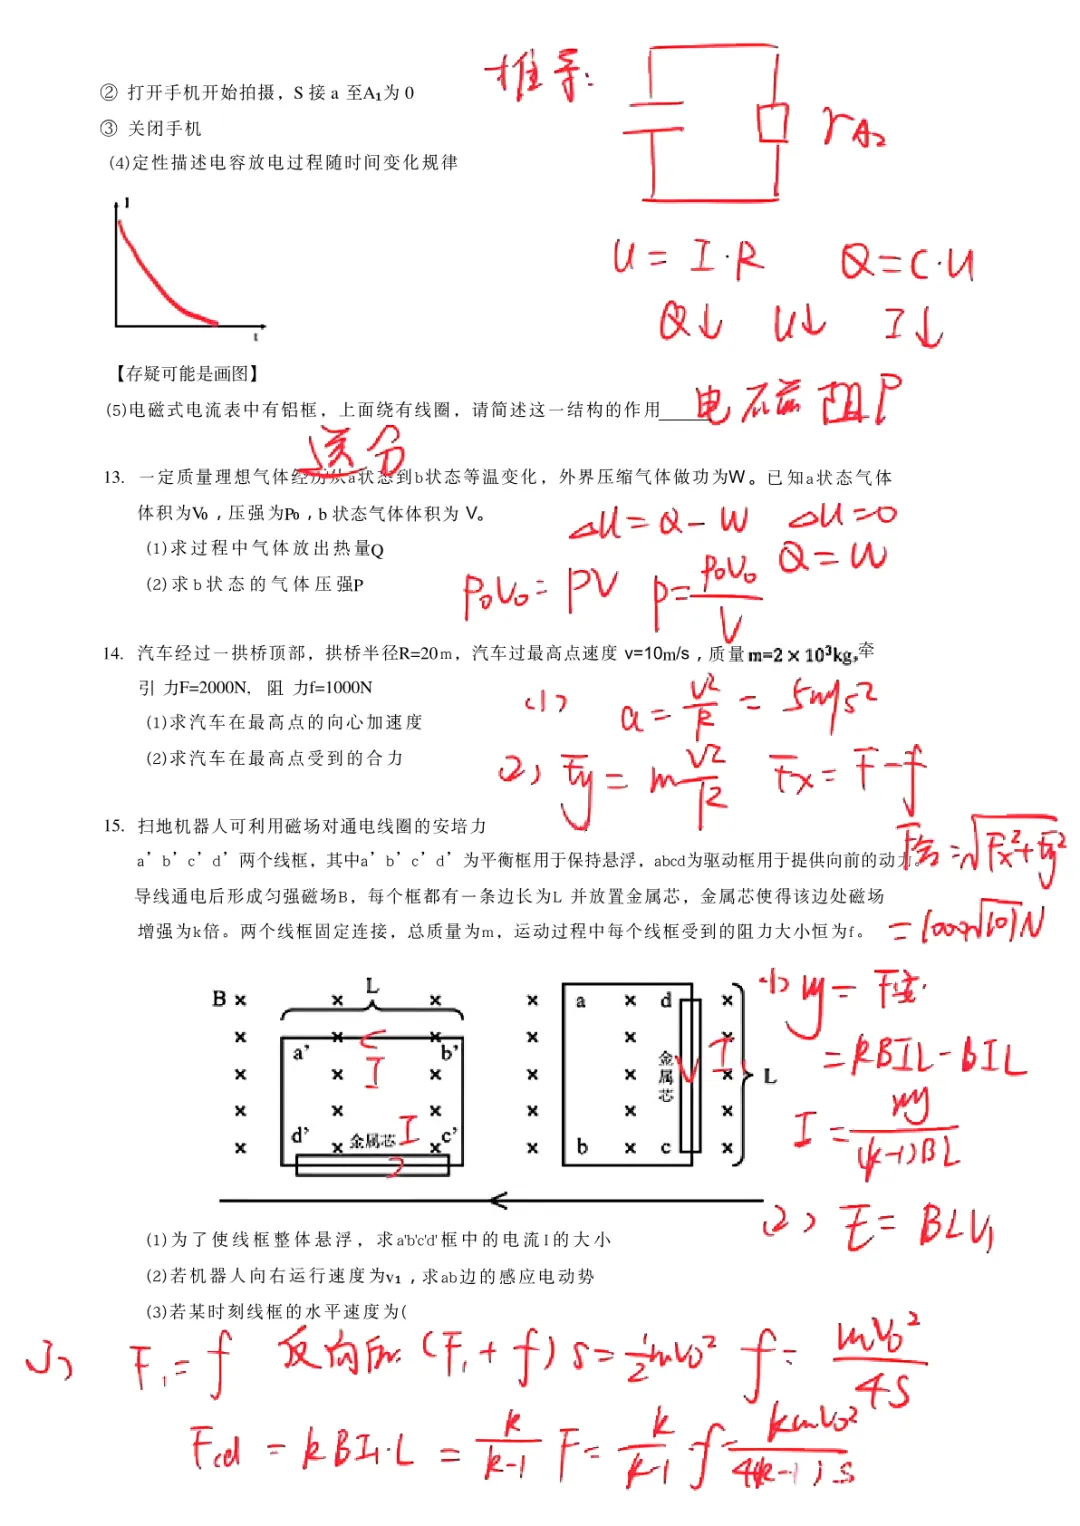 推导:
② 打开手机开始拍摄，S 接 a 至A₁为 0
③ 关闭手机
(4)定性描述电容放电过程随时间变化规律
r A₂
I
t
U = I·R Q=C·U
Q↓ U↓ I↓
【存疑可能是画图】
(5)电磁式电流表中有铝框，上面绕有线圈，请简述这一结构的作用______
电磁阻尼
送分
13. 一定质量理想气体经历从a状态到b状态等温变化，外界压缩气体做功为W。已知a状态气体
体积为V₀，压强为P₀，b 状态气体体积为 V。
ΔU=Q-W ΔU=0
(1)求过程中气体放出热量Q
Q=W
(2)求b状态的气体压强P
P₀V₀=PV P=P₀V₀/V
14. 汽车经过一拱桥顶部，拱桥半径R=20m，汽车过最高点速度 v=10m/s，质量m=2×10³kg，牵
引 力F=2000N， 阻 力f=1000N
(1) a=v²/R=5m/s²
(1)求汽车在最高点的向心加速度
(2)求汽车在最高点受到的合力
(2) Fy=mv²/R Fx=F-f
15. 扫地机器人可利用磁场对通电线圈的安培力
F合=√Fx²+Fy²
a'b'c'd'两个线框，其中a'b'c'd'为平衡框用于保持悬浮，abcd为驱动框用于提供向前的动力。
导线通电后形成匀强磁场B，每个框都有一条边长为L 并放置金属芯，金属芯使得该边处磁场
增强为k倍。两个线框固定连接，总质量为m，运动过程中每个线框受到的阻力大小恒为f。
=1000√10N
B L
a' b' I
d' 金属芯 I c'
a d
金属芯 I L
b c
(1) mg=F安
=kBIL-BIL
I=mg/(k-1)BL
(2) E=BLV₁
(1)为了使线框整体悬浮，求a'b'c'd'框中的电流I的大小
(2)若机器人向右运行速度为v₁，求ab边的感应电动势
(3)若某时刻线框的水平速度为(
(3) F₁=f 反向后:(F₁+f)S=½mv₀² f=mv₀²/4S
Fcd=kBI₁·L=k/k-1 F=k/k-1·f=kmv₀²/4(k-1)S